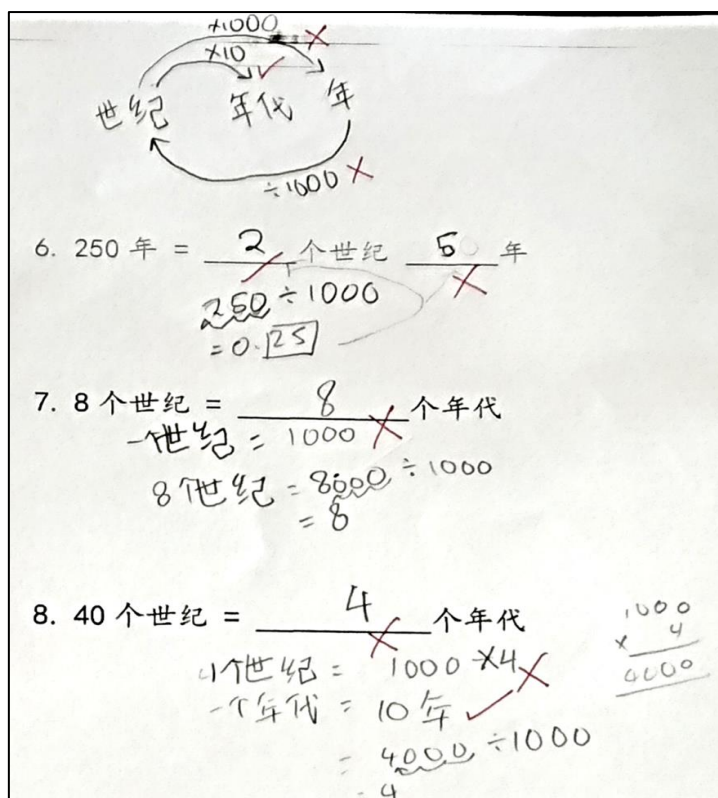 ×1000
×10
世纪 年代 年
÷1000
6. 250 年 = 2 个世纪 5 年
250÷1000
=0.25
7. 8 个世纪 = 8 个年代
一个世纪 = 1000
8个世纪 = 8000 ÷1000
= 8
8. 40 个世纪 = 4 个年代
个世纪 = 1000 ×4
一个年代 = 10 年
= 4000 ÷1000
4
1000
× 4
4000